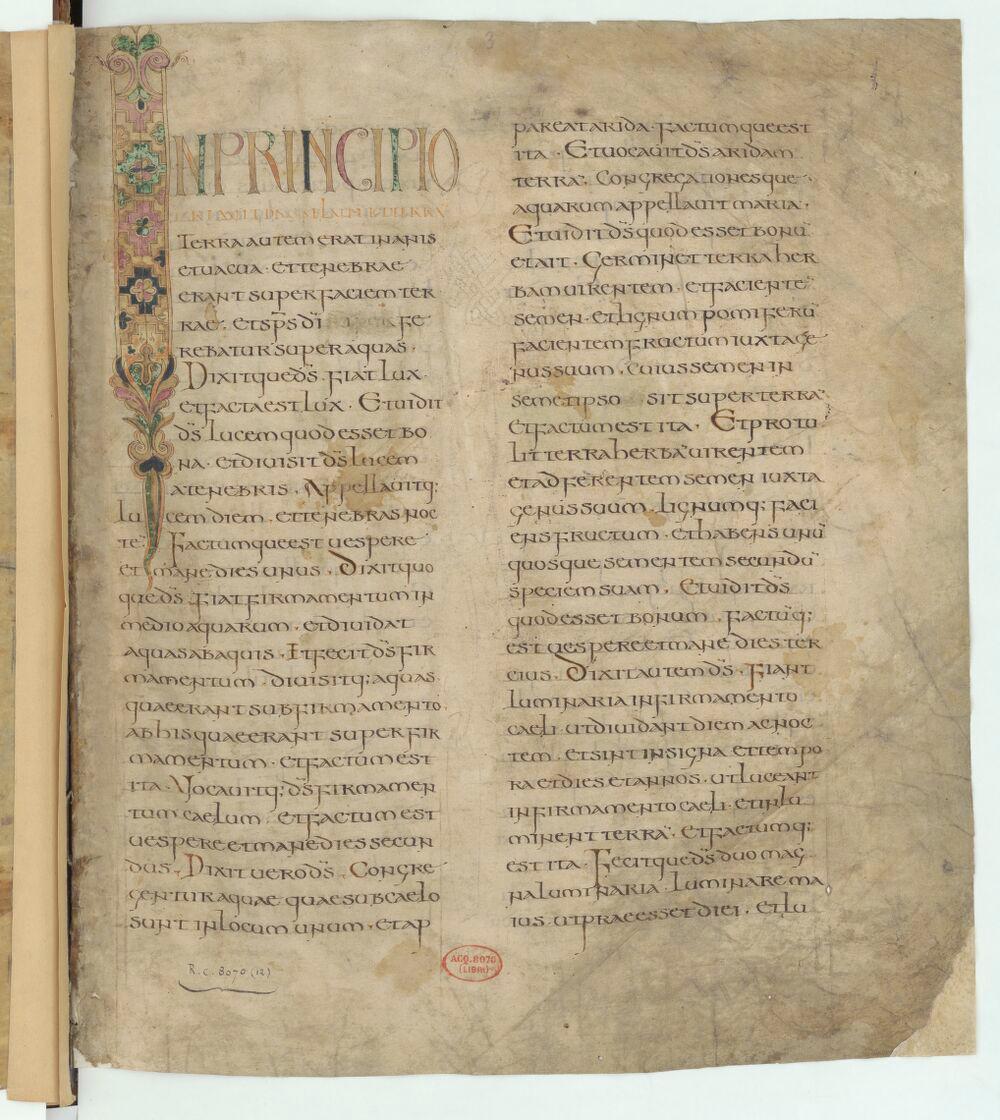 3
INPRINCIPIO
TERRA AUTEM ERAT INANIS
ETUACUA · ET TENEBRAE
ERANT SUPER FACIEM TER
RAE · ET SP̄S DI FE
REBATUR SUPER AQUAS ·
DIXITQUE D̄S · FIAT LUX ·
ET FACTA EST LUX · ET UIDIT
D̄S LUCEM QUOD ESSET BO
NA · ET DIUISIT D̄S LUCEM
A TENEBRIS · APPELLAUITQ;
LUCEM DIEM · ET TENEBRAS NOC
TE FACTUMQUE EST UESPERE
ET MANE DIES UNUS · DIXITQUO
QUE D̄S · FIAT FIRMAMENTUM IN
MEDIO AQUARUM · ET DIUIDAT
AQUAS AB AQUIS · ET FECIT D̄S FIR
MAMENTUM · DIUISITQ; AQUAS
QUAE ERANT SUB FIRMAMENTO
AB HIS QUAE ERANT SUPER FIR
MAMENTUM · ET FACTUM EST
ITA · VOCAUITQ; D̄S FIRMAMEN
TUM CAELUM · ET FACTUM EST
UESPERE ET MANE DIES SECUN
DUS · DIXIT UERO D̄S · CONGRE
GENTUR AQUAE QUAE SUB CAELO
SUNT IN LOCUM UNUM · ET AP
PAREAT ARIDA · FACTUMQUE EST
ITA · ET UOCAUIT D̄S ARIDAM
TERRĀ · CONGREGATIONESQUE
AQUARUM APPELLAUIT MARIA ·
ET UIDIT D̄S QUOD ESSET BONŪ
ET AIT · GERMINET TERRA HER
BAM UIRENTEM · ET FACIENTĒ
SEMEN · ET LIGNUM POMIFERŪ
FACIENTEM FRUCTUM IUXTA GE
NUS SUUM · CUIUS SEMEN IN
SEMETIPSO SIT SUPER TERRĀ
ET FACTUM EST ITA · ET PROTU
LIT TERRA HERBĀ UIRENTEM
ET ADFERENTEM SEMEN IUXTA
GENUS SUUM · LIGNUMQ; FACI
ENS FRUCTUM · ET HABENS UNŪ
QUOSQUE SEMENTEM SECUNDŪ
SPECIEM SUAM · ET UIDIT D̄S
QUOD ESSET BONUM · FACTŪQ;
EST UESPERE ET MANE DIES TER
CIUS · DIXIT AUTEM D̄S · FIANT
LUMINARIA IN FIRMAMENTO
CAELI · UT DIUIDANT DIEM AC NOC
TEM · ET SINT IN SIGNA ET TEMPO
RA ET DIES ET ANNOS · UT LUCEANT
IN FIRMAMENTO CAELI · ET INLU
MINENT TERRĀ · ET FACTUMQ;
EST ITA · FECITQUE D̄S DUO MAG
NA LUMINARIA · LUMINARE MA
IUS · UT PRAEESSET DIEI · ET LU
R.c. 8070 (12)
ACQ. 8070
(LIBRI)